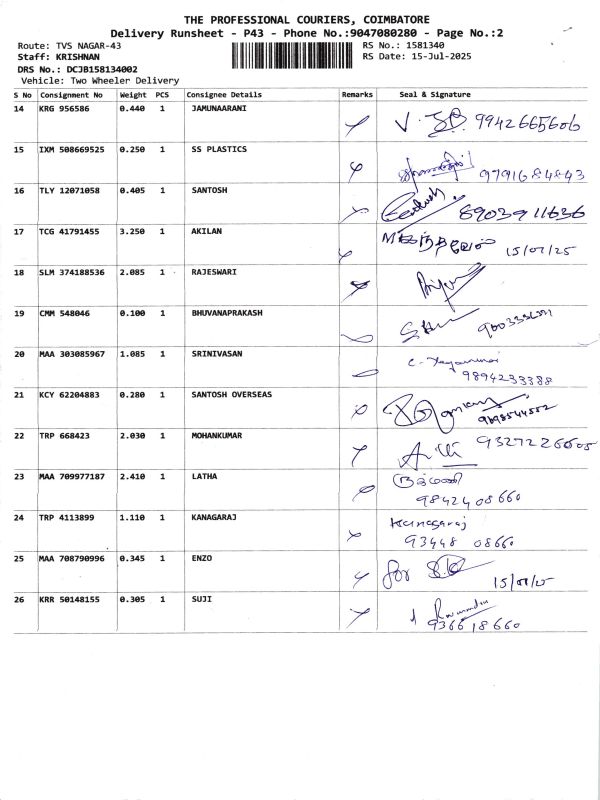 THE PROFESSIONAL COURIERS, COIMBATORE
Delivery Runsheet - P43 - Phone No.:9047080280 - Page No.:2
Route: TVS NAGAR-43 RS No.: 1581340
Staff: KRISHNAN RS Date: 15-Jul-2025
DRS No.: DCJB158134002
Vehicle: Two Wheeler Delivery
S No Consignment No Weight PCS Consignee Details Remarks Seal & Signature
14 KRG 956586 0.440 1 JAMUNAARANI 9942665606
15 IXM 508669525 0.250 1 SS PLASTICS 9791684843
16 TLY 12071058 0.405 1 SANTOSH 8903911636
17 TCG 41791455 3.250 1 AKILAN 15/07/25
18 SLM 374188536 2.085 1 RAJESWARI
19 CMM 548046 0.100 1 BHUVANAPRAKASH
20 MAA 303085967 1.085 1 SRINIVASAN
9894233388
21 KCY 62204883 0.280 1 SANTOSH OVERSEAS
22 TRP 668423 2.030 1 MOHANKUMAR 9327226605
23 MAA 709977187 2.410 1 LATHA
9842408660
24 TRP 4113899 1.110 1 KANAGARAJ Kanagaraj
93448 08660
25 MAA 708790996 0.345 1 ENZO for 15/07/25
26 KRR 50148155 0.305 1 SUJI
936618660